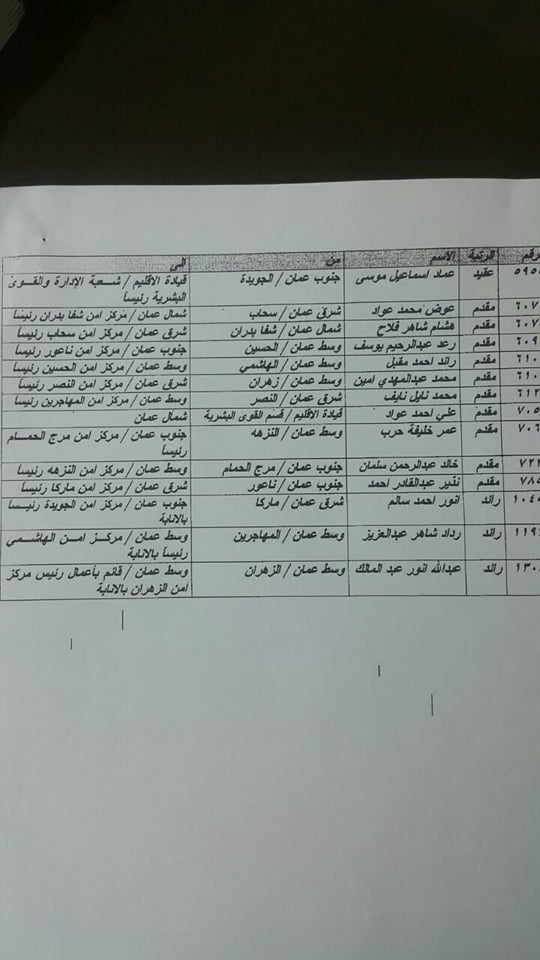 رقم الرتبة الاسم من الى
٥٩٥ عقيد عماد اسماعيل موسى جنوب عمان / الجويدة قيادة الاقليم / شعبة الإدارة والقوى
البشرية رئيساً
٦٠٧ مقدم عوض محمد عواد شرق عمان / سحاب شمال عمان / مركز امن شفا بدران رئيساً
٦٠٧ مقدم هشام شاهر فلاح شمال عمان / شفا بدران شرق عمان / مركز امن سحاب رئيساً
٦٠٩ مقدم رعد عبدالرحيم يوسف وسط عمان / الحسين جنوب عمان / مركز امن ناعور رئيساً
٦١٠ مقدم رائد احمد مقبل وسط عمان / الهاشمي وسط عمان / مركز امن الحسين رئيساً
٦١٠ مقدم محمد عبدالمهدي امين وسط عمان / زهران شرق عمان / مركز امن النصر رئيساً
٦١٢ مقدم محمد نايل نايف شرق عمان / النصر وسط عمان / مركز امن المهاجرين رئيساً
٧٠٥ مقدم علي احمد عواد قيادة الاقليم / قسم القوى البشرية شمال عمان
٧٠٦ مقدم عمر خليفة حرب وسط عمان / النزهه جنوب عمان / مركز امن مرج الحمام
رئيساً
٧٢٢ مقدم خالد عبدالرحمن سلمان جنوب عمان / مرج الحمام وسط عمان / مركز امن النزهه رئيساً
٧٨٥ مقدم نذير عبدالقادر احمد جنوب عمان / ناعور شرق عمان / مركز امن ماركا رئيساً
١٠٤٥ رائد انور احمد سالم شرق عمان / ماركا جنوب عمان / مركز امن الجويدة رئيساً
بالانابة
١١٩٤ رائد رداد شاهر عبدالعزيز وسط عمان / المهاجرين وسط عمان / مركز امن الهاشمي
رئيساً بالانابة
١٣٠ رائد عبدالله انور عبد المالك وسط عمان / الزهران وسط عمان / قائم بأعمال رئيس مركز
امن الزهران بالانابة